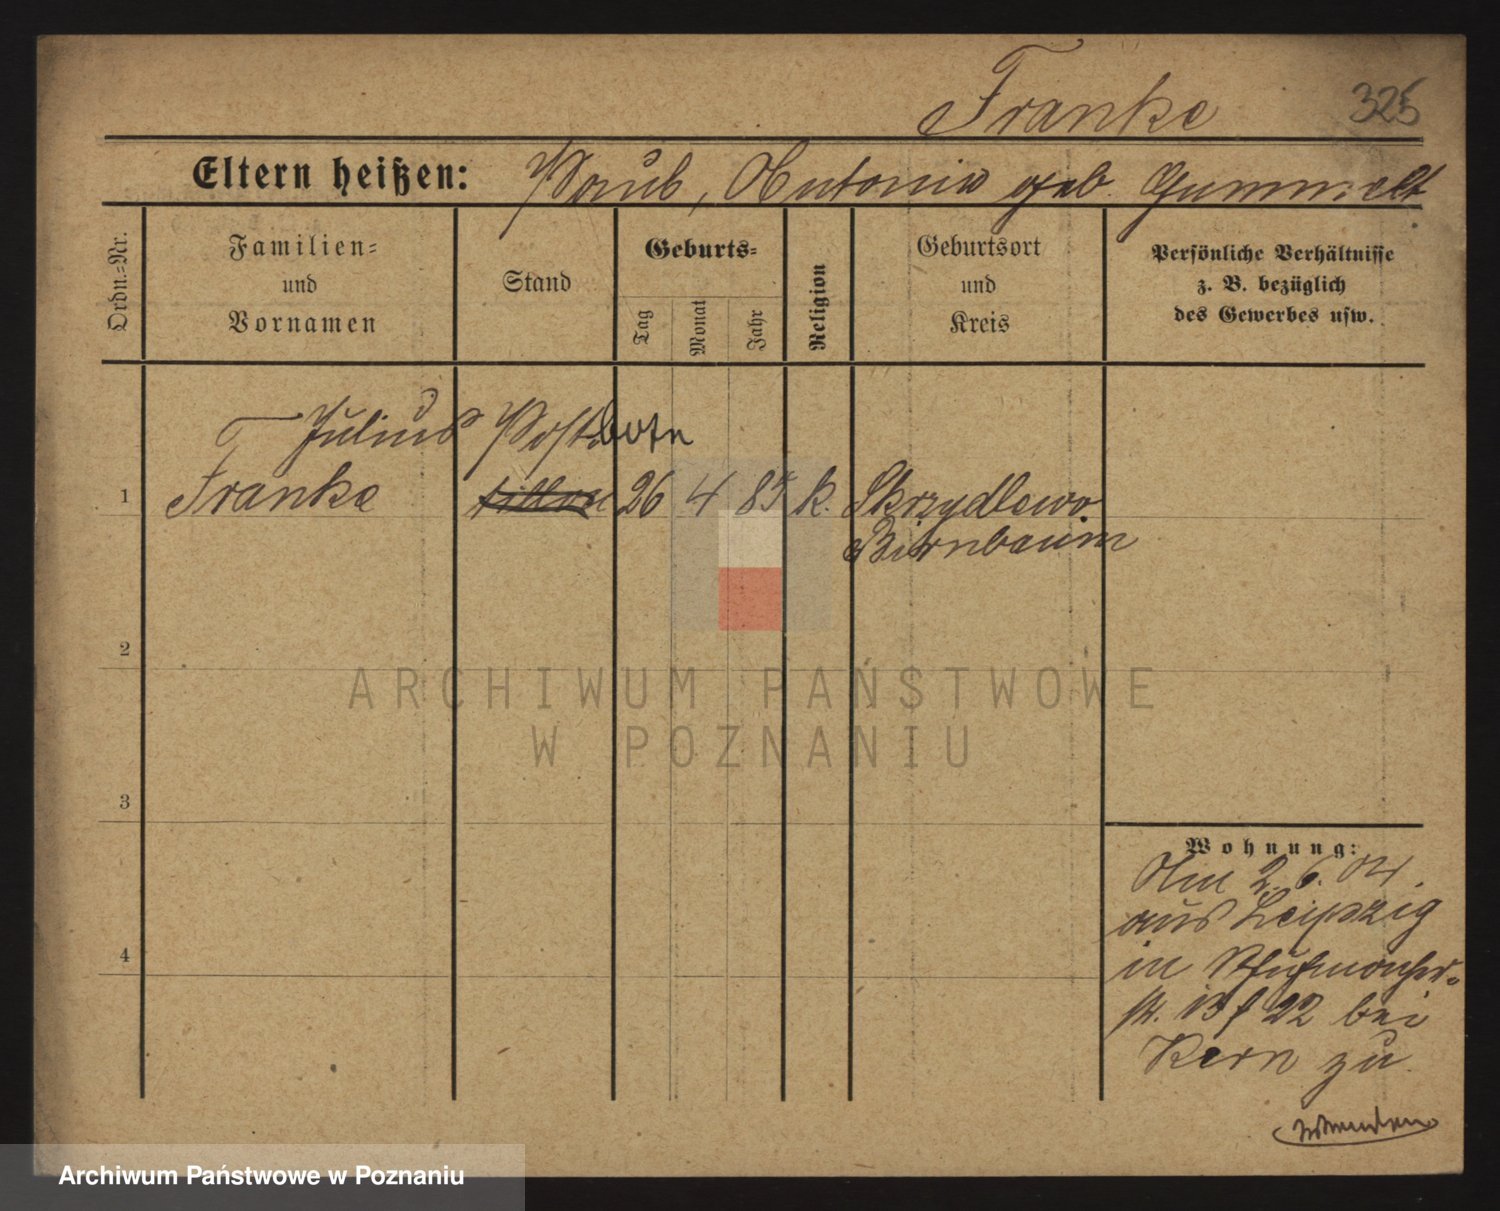 Franke 325
Eltern heißen: Jakub, Antonie geb. Gummelt
Ordn.=Nr.
Familien=
und
Vornamen
Stand
Geburts=
Tag
Monat
Jahr
Religion
Geburtsort
und
Kreis
Persönliche Verhältnisse
z. B. bezüglich
des Gewerbes usw.
Julius Postbote
1 Franke 26 4 85 k. Skrzydlewo
Birnbaum
2
3
4
Wohnung:
Am 2. 6. 04.
aus Leipzig
in
str. 22 bei
Kern zu
wenden
ARCHIWUM PAŃSTWOWE
W POZNANIU
Archiwum Państwowe w Poznaniu